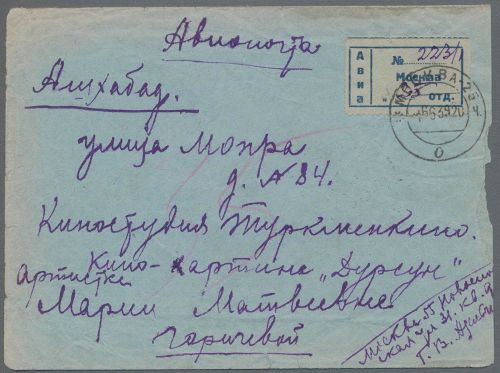 Авиопочта
Авиа
№ 223/
Москва
отд.
МОСКВА
Ашхабад.
улица Мопра
д. № 84.
Киностудия Туркменкино.
Кино-картина „Дурсун"
артистке
Марии Матвеевне
Гаричевой
Москва 55
ская ул. 31. кв.
Г. В.